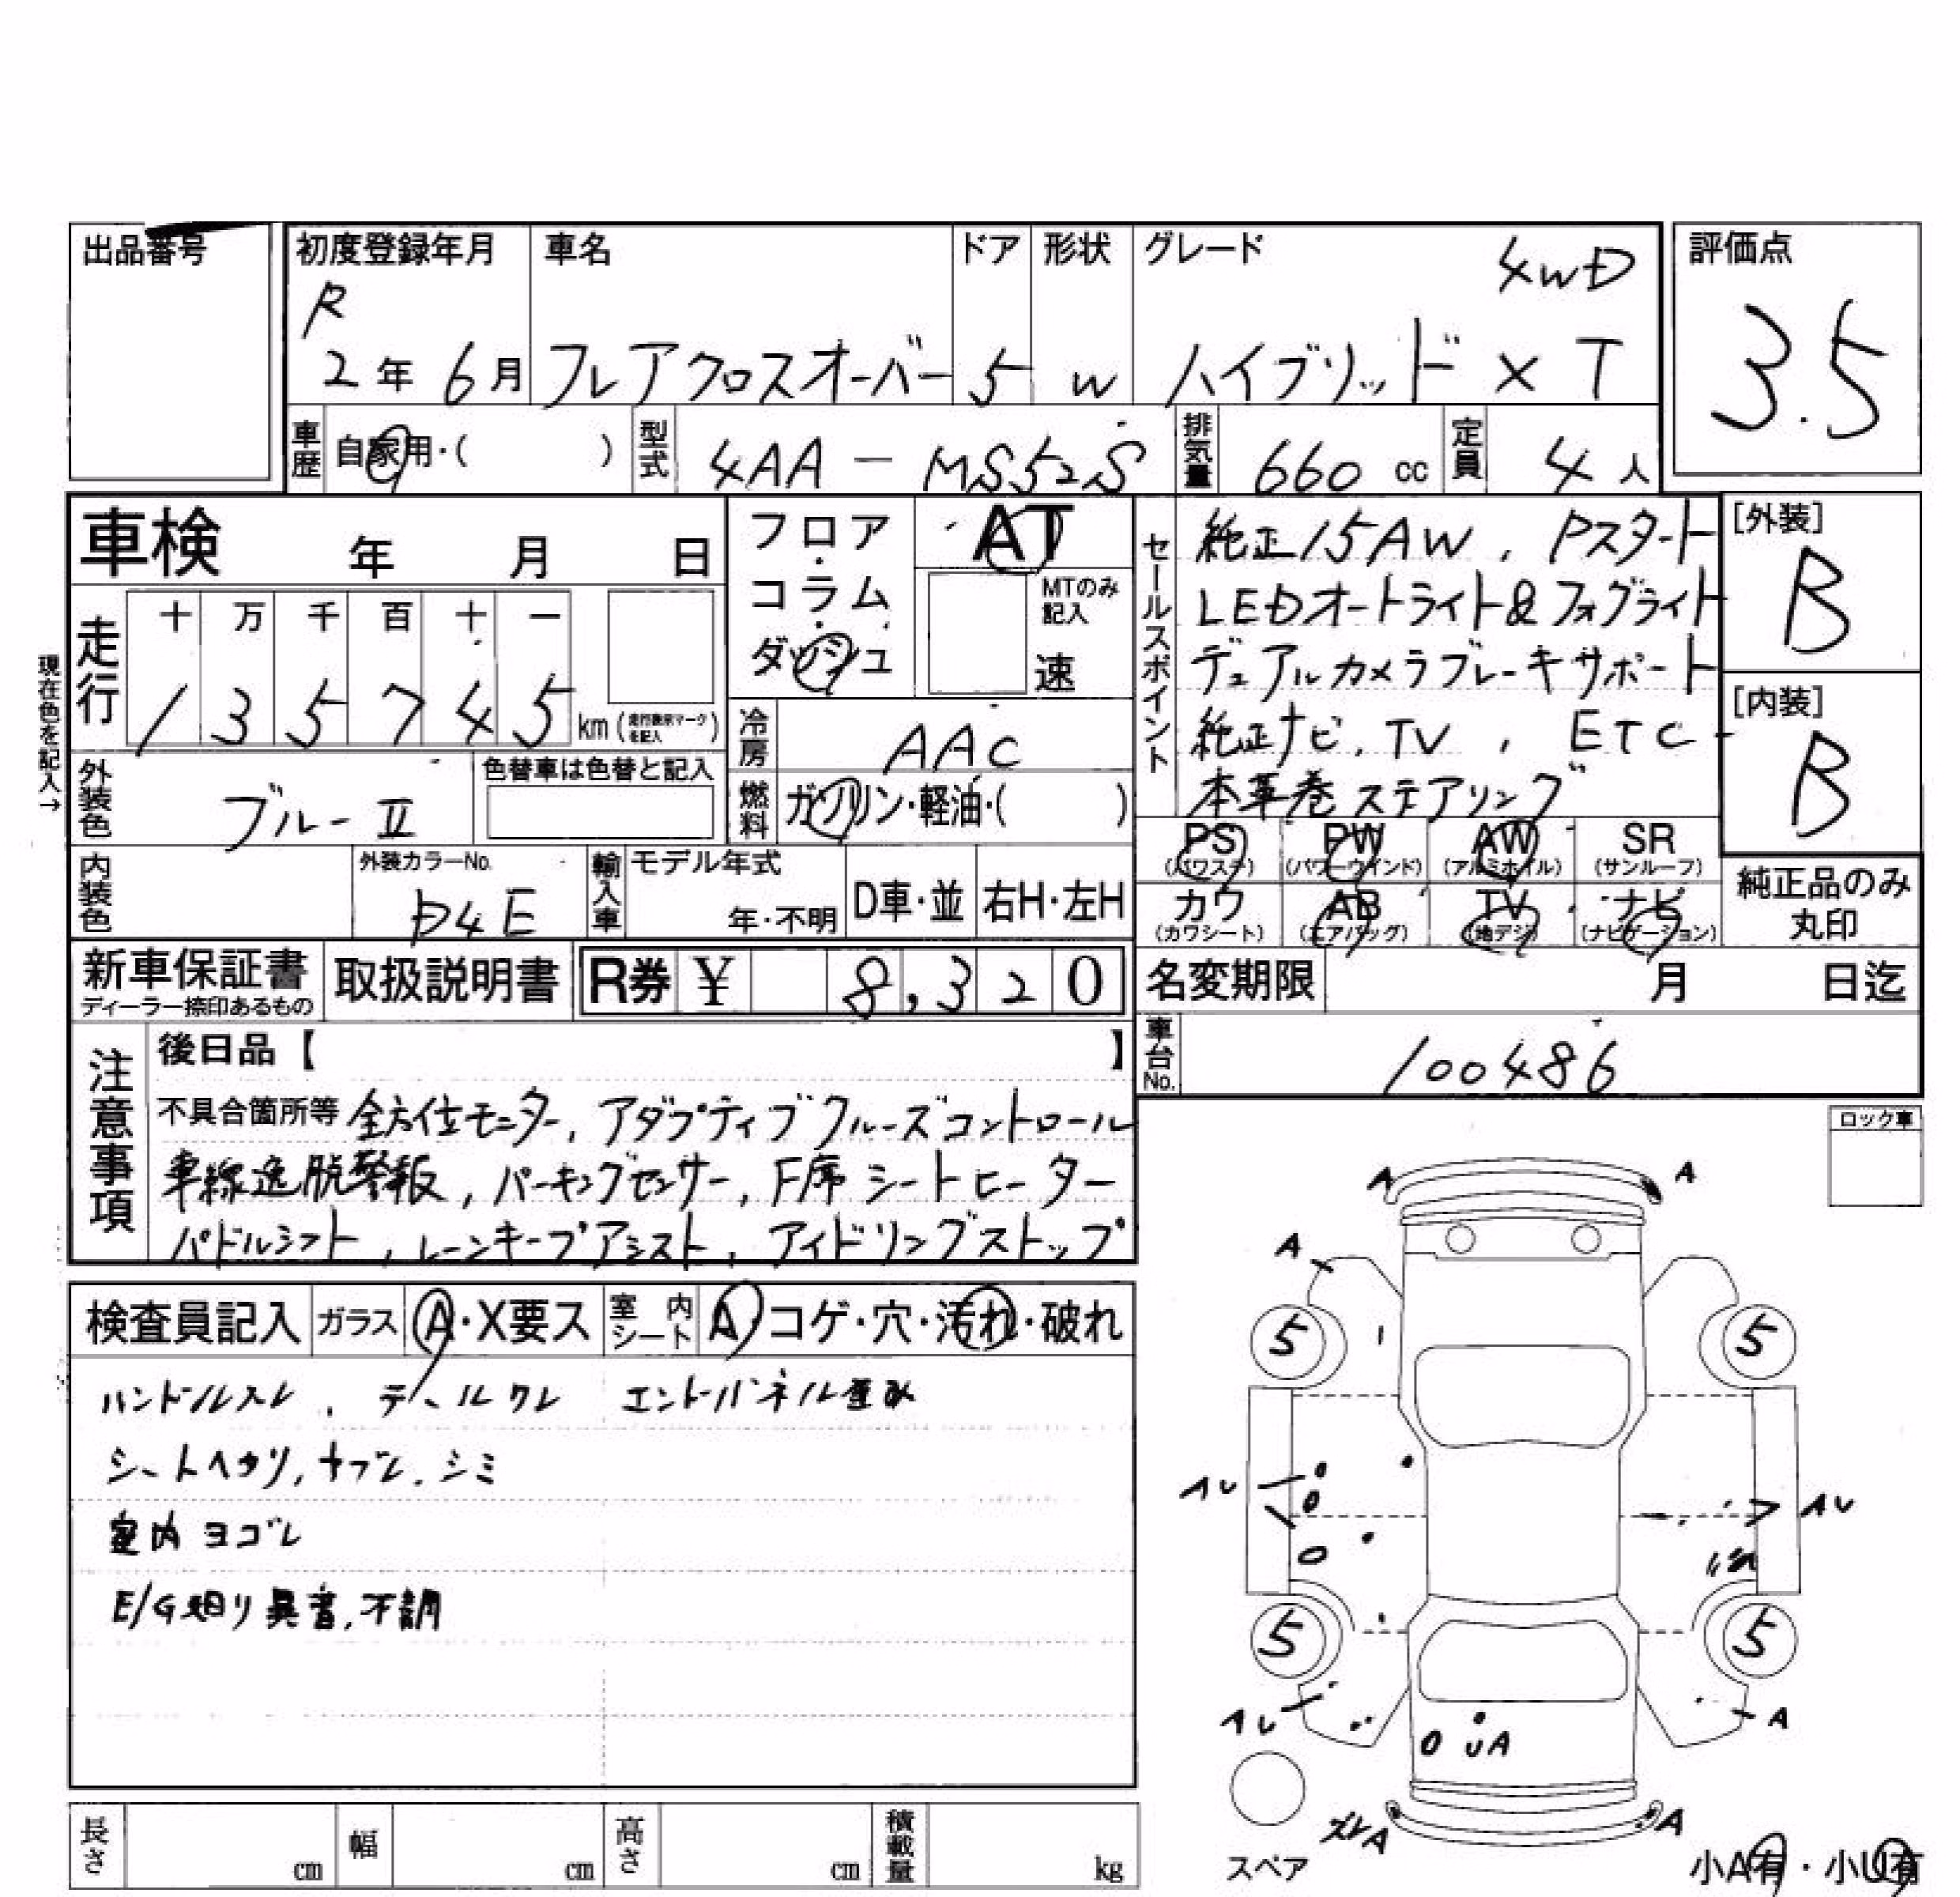 出品番号
初度登録年月
R
2年 6月
車名
フレアクロスオーバー
ドア
5
形状
W
グレード
4WD
ハイブリッド XT
評価点
3.5
車歴
自家用・( )
型式
4AA - MS52S
排気量
660 cc
定員
4人
車検 年 月 日
フロア・コラム・ダッシュ
AT
MTのみ記入
速
現在色を記入→
走行
十 万 千 百 十 一
1 3 5 7 4 5 km (走行表示マークを記入)
冷房
AAC
燃料
ガソリン・軽油・( )
外装色
ブルーⅡ
色替車は色替と記入
内装色
外装カラーNo.
D4E
輸入車
モデル年式
年・不明
D車・並
右H・左H
セールスポイント
純正15AW, Pスタート
LEDオートライト&フォグライト
デュアルカメラブレーキサポート
純正ナビ, TV, ETC
本革巻ステアリング
[外装]
B
[内装]
B
PS (パワステ)
PW (パワーウインド)
AW (アルミホイル)
SR (サンルーフ)
カワ (カワシート)
AB (エアバッグ)
TV (地デジ)
ナビ (ナビゲーション)
純正品のみ丸印
新車保証書
ディーラー捺印あるもの
取扱説明書
R券 ¥ 8,320
名変期限 月 日迄
車台No.
100486
注意事項
後日品【 】
不具合箇所等 全方位モニター, アダプティブクルーズコントロール
車線逸脱警報, パーキングセンサー, F席シートヒーター
パドルシフト, レーンキープアシスト, アイドリングストップ
ロック車
検査員記入
ガラス A・X要ス
室内シート A・コゲ・穴・汚れ・破れ
ハンドルスレ, テールワレ エンドパネル歪み
シートヘタリ, ヤブレ, シミ
室内ヨゴレ
E/G廻り異音, 不調
A A
A
5 5
AU AU
5 5
AU A
UA
ズレA A
スペア
小A有・小U有
長さ cm
幅 cm
高さ cm
積載量 kg